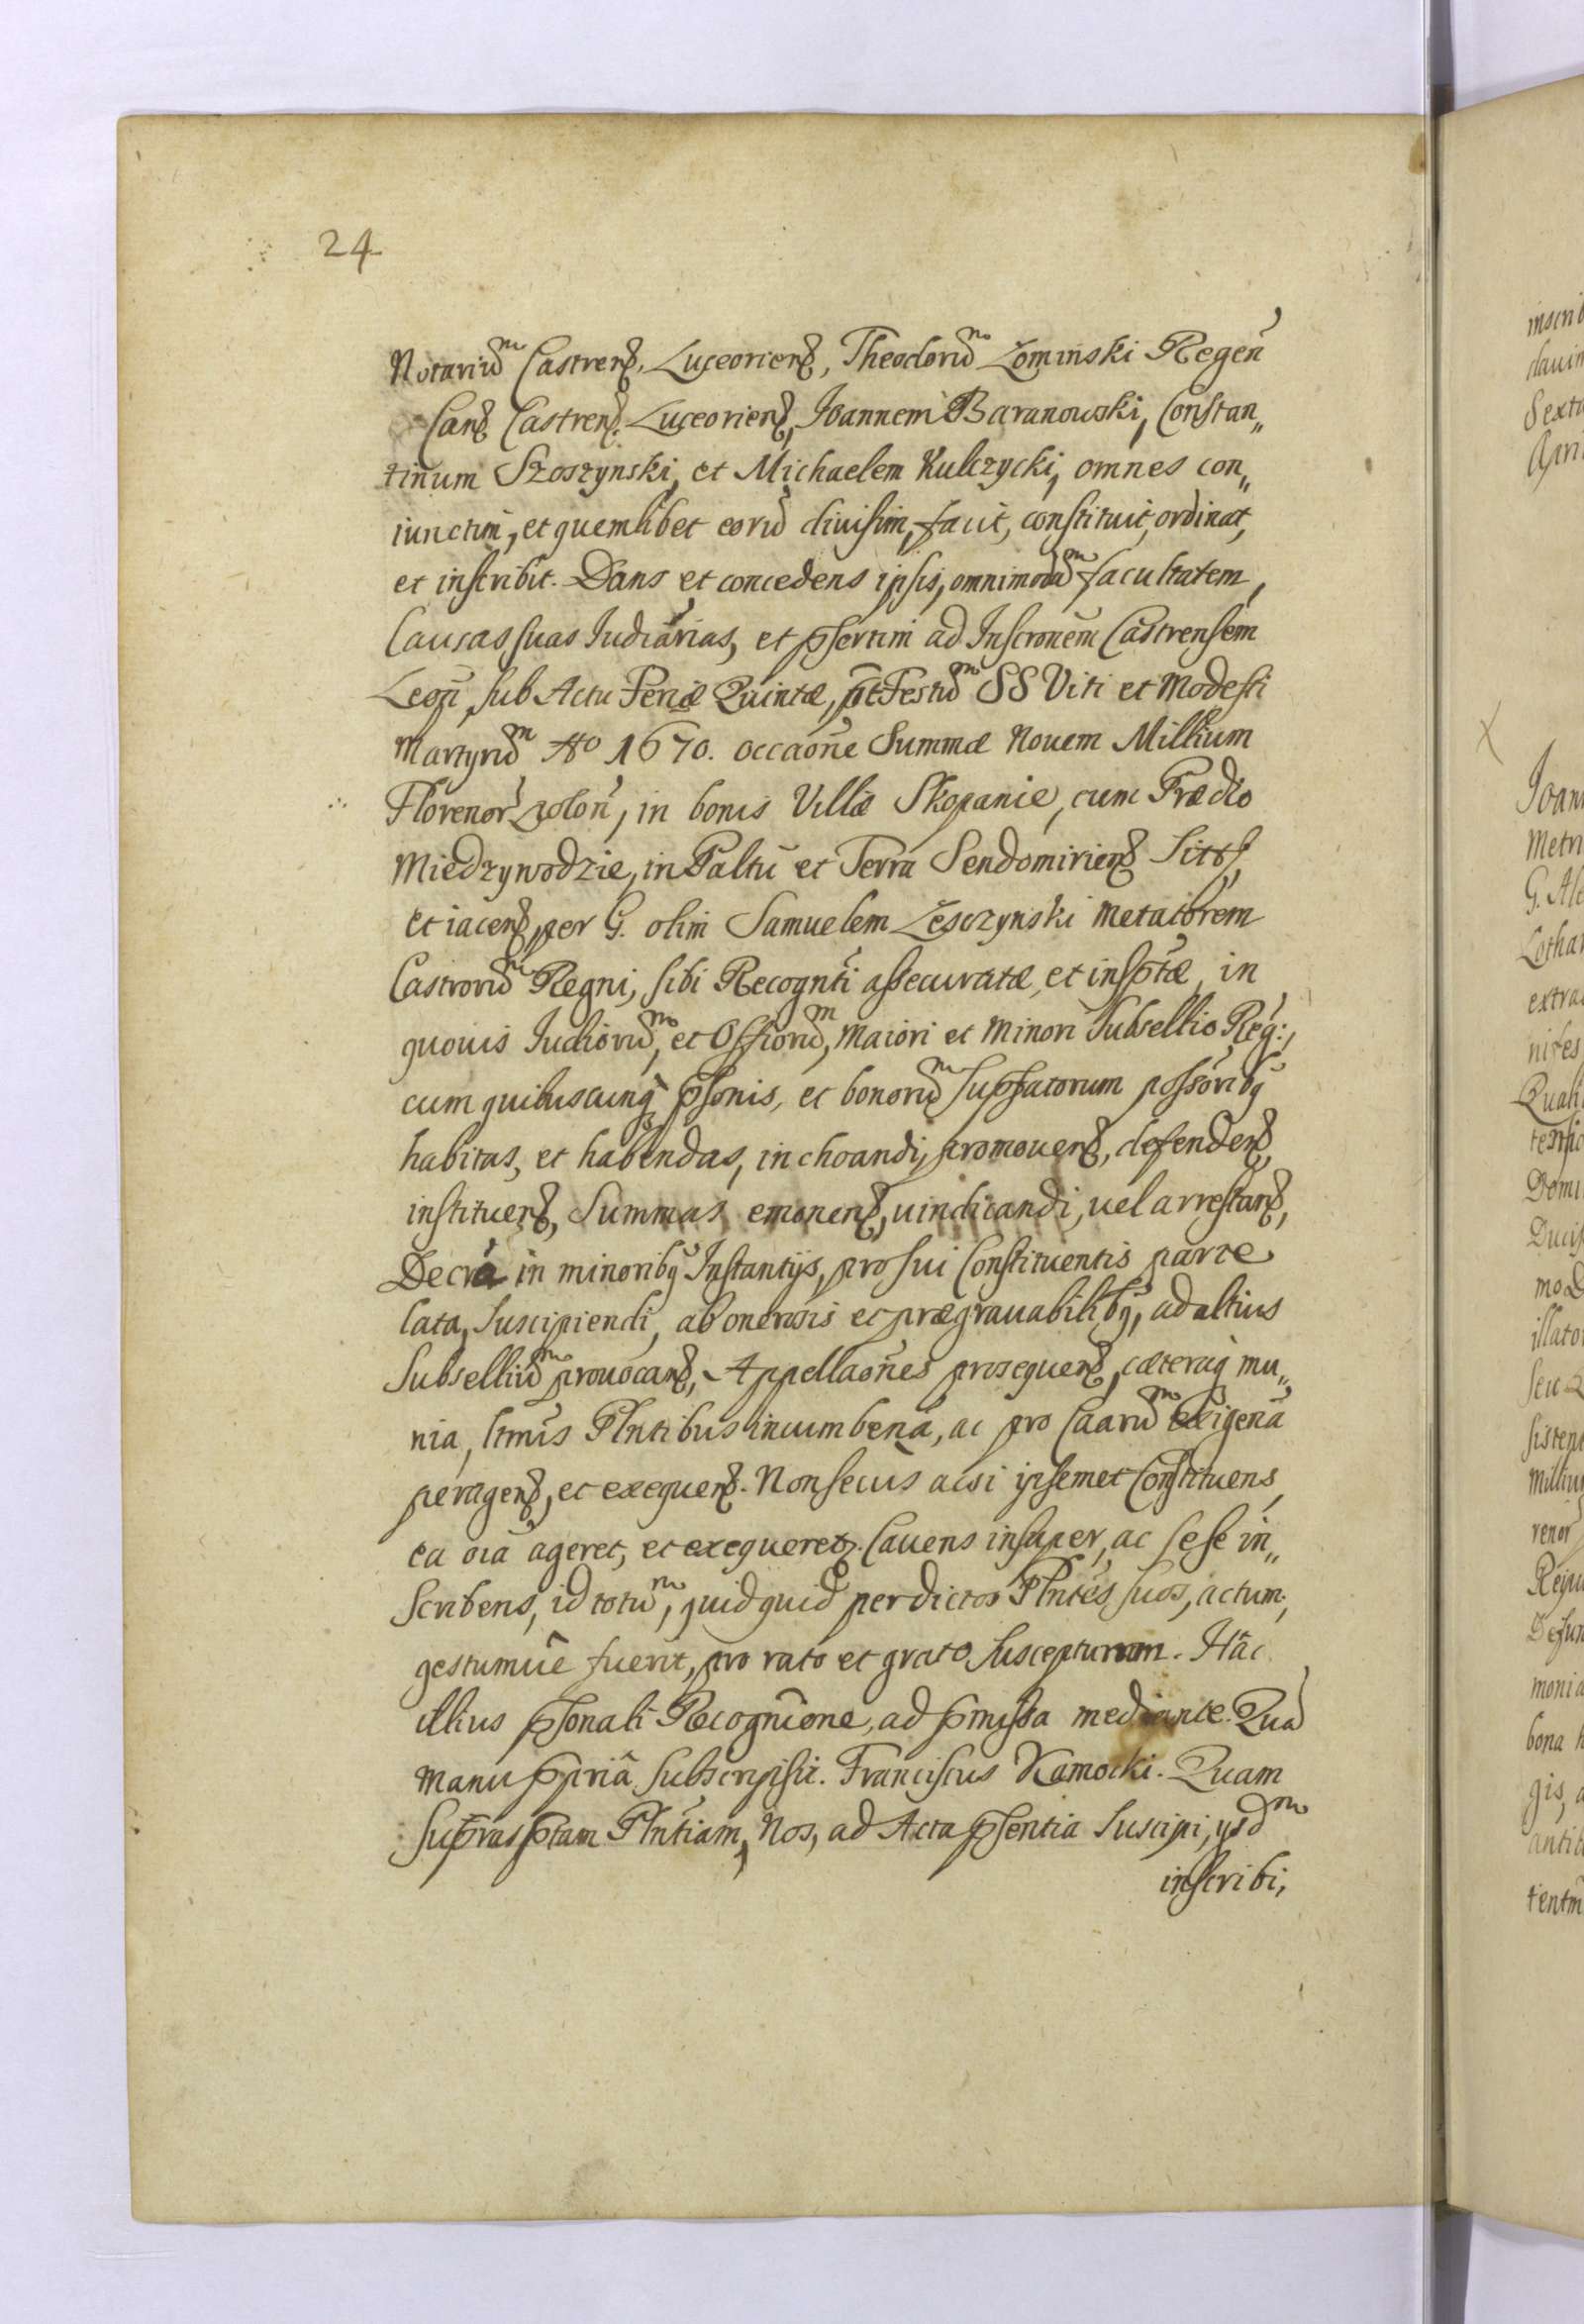 24
Notariũ Castren. Luceorien, Theodorũ Łomiński Regeñ
Canc Castren. Luceorien, Joannem Baranowski, Constan„
tinum Szoszynski, et Michaelem Kulczycki, omnes con„
iunctim, et quemlibet eorũ diuisim, facit, constituit, ordinat,
et inscribit. Dans et concedens ipsis, omnimodã facultatem,
Causas suas Iudiarias, et p̃sertim ad Inscronem Castrensem
Leoñ, sub Actu Feriæ Quintæ, p̃t Festũ SS Viti et Modesti
Martyrũ Aº 1670. occaõne Summæ Nouem Millium
Florenor̃ poloñ, in bonis Villæ Skopanie, cum Prædio
Miedzywodzie, in Paltũ et Terra Sendomirien Sitis,
et iacen, per G. olim Samuelem Leszczynski Metatorem
Castrorũ Regni, sibi Recognti assecuratæ, et insp̃tæ, in
quouis Iudiorũ, et Offiorũ, Maiori et Minori Subsellio Reg:,
cum quibuscunq p̃sonis, et bonorũ sup̃satorum possoribq
habitas, et habendas, inchoandi, promouen, defenden,
instituen, Summas emonen, uindicandi, uel arrestan,
Decrã in minoribq Instantijs, pro sui Constituentis parte
lata, suscipiendi, ab onerosis et prægrauabilibq, ad altius
Subselliũ prouocan, Appellaõnes prosequen, cæteraq mu„
nia, ltmis Plntibus incumbeñã, ac pro Caarũ exigeñã
peragen, et exequen. Non secus acsi ipsemet Constituens
ea oĩa ageret, et exequeret. Cauens insuper, ac sese in„
scribens, id totũ, quidquid per dictos Plntes suos, actum,
gestumue fuerit, pro rato et grato suscepturum. Hâc
illius p̃sonali Recognĩone, ad p̃missa mediante. Quã
manu p̃priâ subscripsit. Franciscus Kamocki. Quam
sup̃rasp̃tam Plntiam, Nos, ad Acta p̃sentia suscipi, ysdm
inscribi,